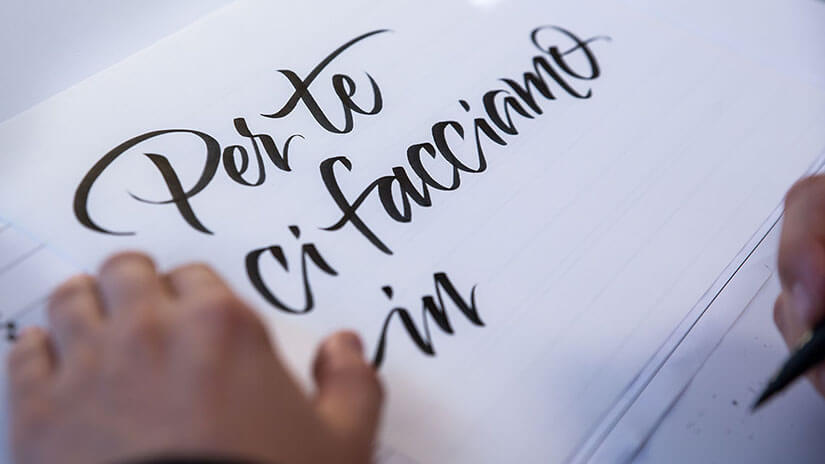 Per te
ci facciamo
in